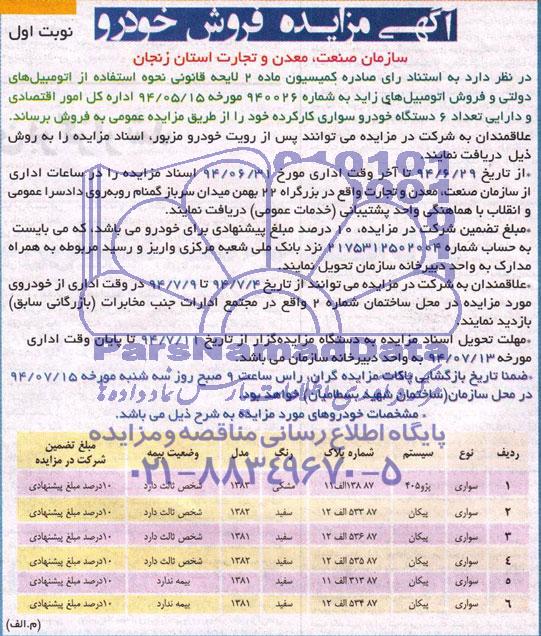 آگهی مزایده فروش خودرو
نوبت اول
سازمان صنعت، معدن و تجارت استان زنجان
در نظر دارد به استناد رای صادره کمیسیون ماده ۲ لایحه قانونی نحوه استفاده از اتومبیل‌های
دولتی و فروش اتومبیل‌های زاید به شماره ۹۴۰۰۲۶ مورخه ۹۴/۰۵/۱۵ اداره کل امور اقتصادی
و دارایی تعداد ۶ دستگاه خودرو سواری کارکرده خود را از طریق مزایده عمومی به فروش برساند.
علاقمندان به شرکت در مزایده می توانند پس از رویت خودرو مزبور، اسناد مزایده را به روش
ذیل دریافت نمایند.
•از تاریخ ۹۴/۶/۲۹ تا آخر وقت اداری مورخ ۹۴/۰۶/۳۱ اسناد مزایده را در ساعات اداری
از سازمان صنعت، معدن و تجارت واقع در بزرگراه ۲۲ بهمن میدان سرباز گمنام روبه‌روی دادسرا عمومی
و انقلاب با هماهنگی واحد پشتیبانی (خدمات عمومی) دریافت نمایند.
•مبلغ تضمین شرکت در مزایده، ۱۰ درصد مبلغ پیشنهادی برای خودرو می باشد، که می بایست
به حساب شماره ۲۱۷۵۳۱۲۵۰۲۰۰۴ نزد بانک ملی شعبه مرکزی واریز و رسید مربوطه به همراه
مدارک به واحد دبیرخانه سازمان تحویل نمایند.
•علاقمندان به شرکت در مزایده می توانند از تاریخ ۹۴/۷/۴ تا ۹۴/۷/۹ در وقت اداری از خودروی
مورد مزایده در محل ساختمان شماره ۲ واقع در مجتمع ادارات جنب مخابرات (بازرگانی سابق)
بازدید نمایند.
•مهلت تحویل اسناد مزایده به دستگاه مزایده‌گزار از تاریخ ۹۴/۷/۱۱ تا پایان وقت اداری
مورخه ۹۴/۰۷/۱۳ به واحد دبیرخانه سازمان می باشد.
ضمنا تاریخ بازگشایی پاکات مزایده گران، راس ساعت ۹ صبح روز سه شنبه مورخه ۹۴/۰۷/۱۵
در محل سازمان (ساختمان شهید بسطامیان) خواهد بود.
• مشخصات خودروهای مورد مزایده به شرح ذیل می باشد.
ParsNamadData
پایگاه اطلاع رسانی مناقصه و مزایده
۰۲۱-۸۸۳۴۹۶۷۰-۵
ردیف نوع سیستم شماره پلاک رنگ مدل وضعیت بیمه مبلغ تضمین شرکت در مزایده
۱ سواری پژو۴۰۵ ۸۷ ۱۳۸الف۱۱ مشکی ۱۳۸۳ شخص ثالث دارد ۱۰درصد مبلغ پیشنهادی
۲ سواری پیکان ۸۷ ۵۳۳ الف ۱۲ سفید ۱۳۸۲ شخص ثالث دارد ۱۰درصد مبلغ پیشنهادی
۳ سواری پیکان ۸۷ ۵۳۶ الف ۱۲ سفید ۱۳۸۱ شخص ثالث دارد ۱۰درصد مبلغ پیشنهادی
۴ سواری پیکان ۸۷ ۵۳۵ الف ۱۲ سفید ۱۳۸۲ شخص ثالث دارد ۱۰درصد مبلغ پیشنهادی
۵ سواری پیکان ۸۷ ۳۱۳ الف ۱۱ سفید ۱۳۸۱ بیمه ندارد ۱۰درصد مبلغ پیشنهادی
۶ سواری پیکان ۸۷ ۵۳۴ الف ۱۲ سفید ۱۳۸۱ بیمه ندارد ۱۰درصد مبلغ پیشنهادی
(م.الف)